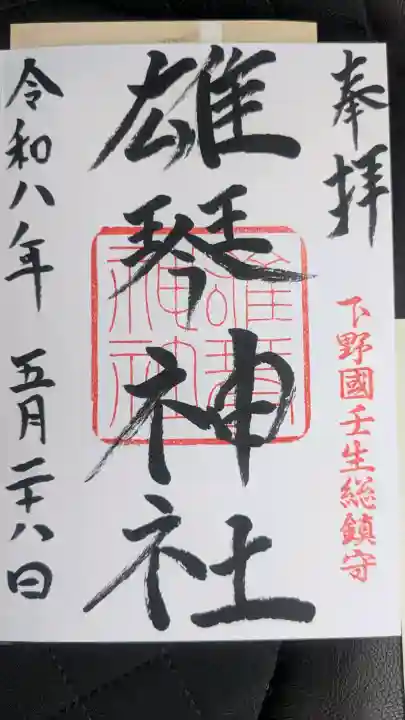 奉拝
下野國壬生総鎮守
雄琴神社
雄琴神社
令和八年 五月二十八日